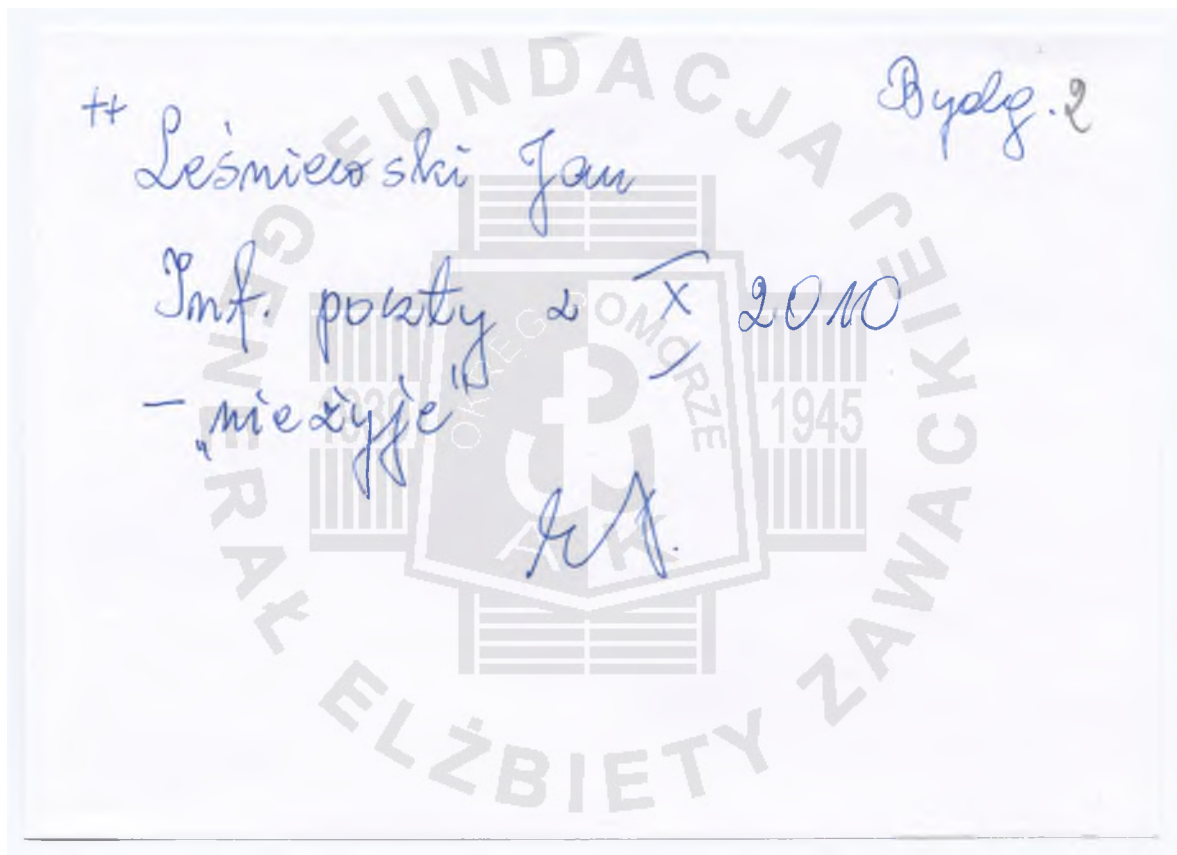 Bydg. 2
++
Leśniewski Jan
Inf. poczty z X 2010
– „nie żyje"
FUNDACJA
GENERAŁ ELŻBIETY ZAWACKIEJ
OKRĘG POMORZE
1939 1945
AK